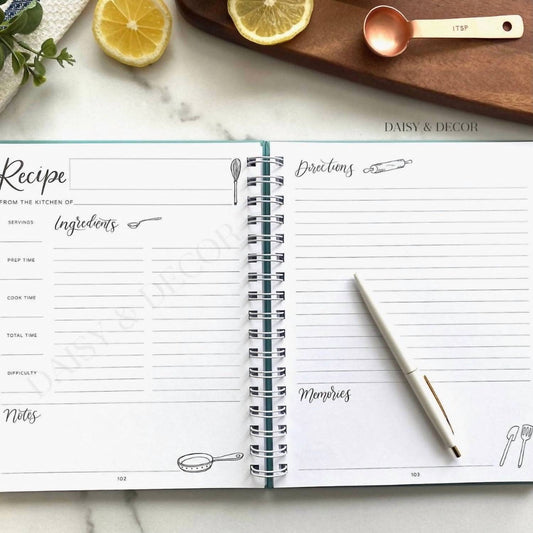 1TSP
DAISY & DECOR
Recipe
FROM THE KITCHEN OF
SERVINGS
Ingredients
PREP TIME
COOK TIME
TOTAL TIME
DIFFICULTY
Notes
102
Directions
Memories
103
DAISY & DECOR